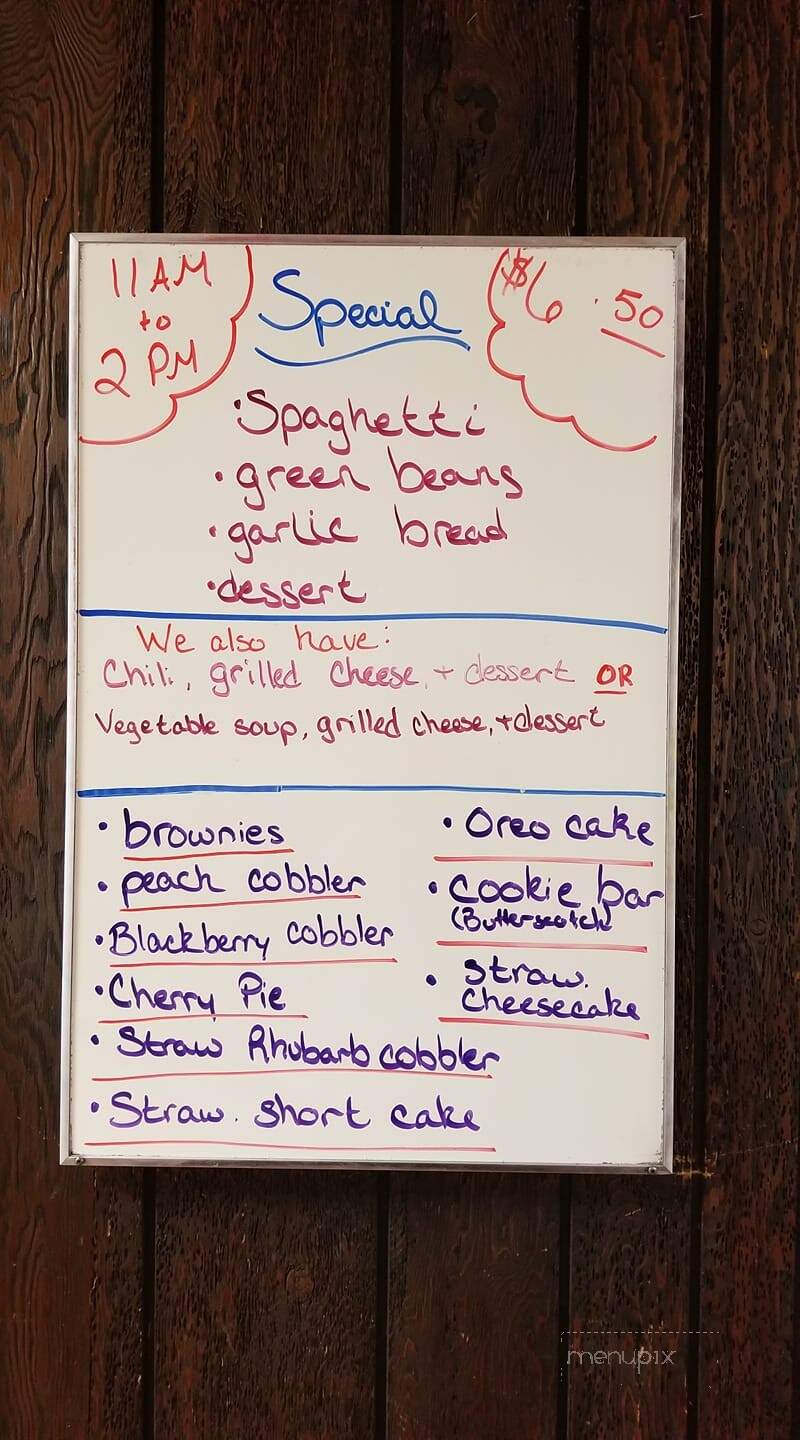 11 AM
to
2 PM
Special
$6.50
• Spaghetti
• green beans
• garlic bread
• dessert
We also have:
Chili, grilled cheese, + dessert OR
Vegetable soup, grilled cheese, + dessert
• brownies
• peach cobbler
• Blackberry cobbler
• Cherry Pie
• Straw Rhubarb cobbler
• Straw. short cake
• Oreo cake
• Cookie bar
(Butterscotch)
• Straw.
Cheesecake
menupix